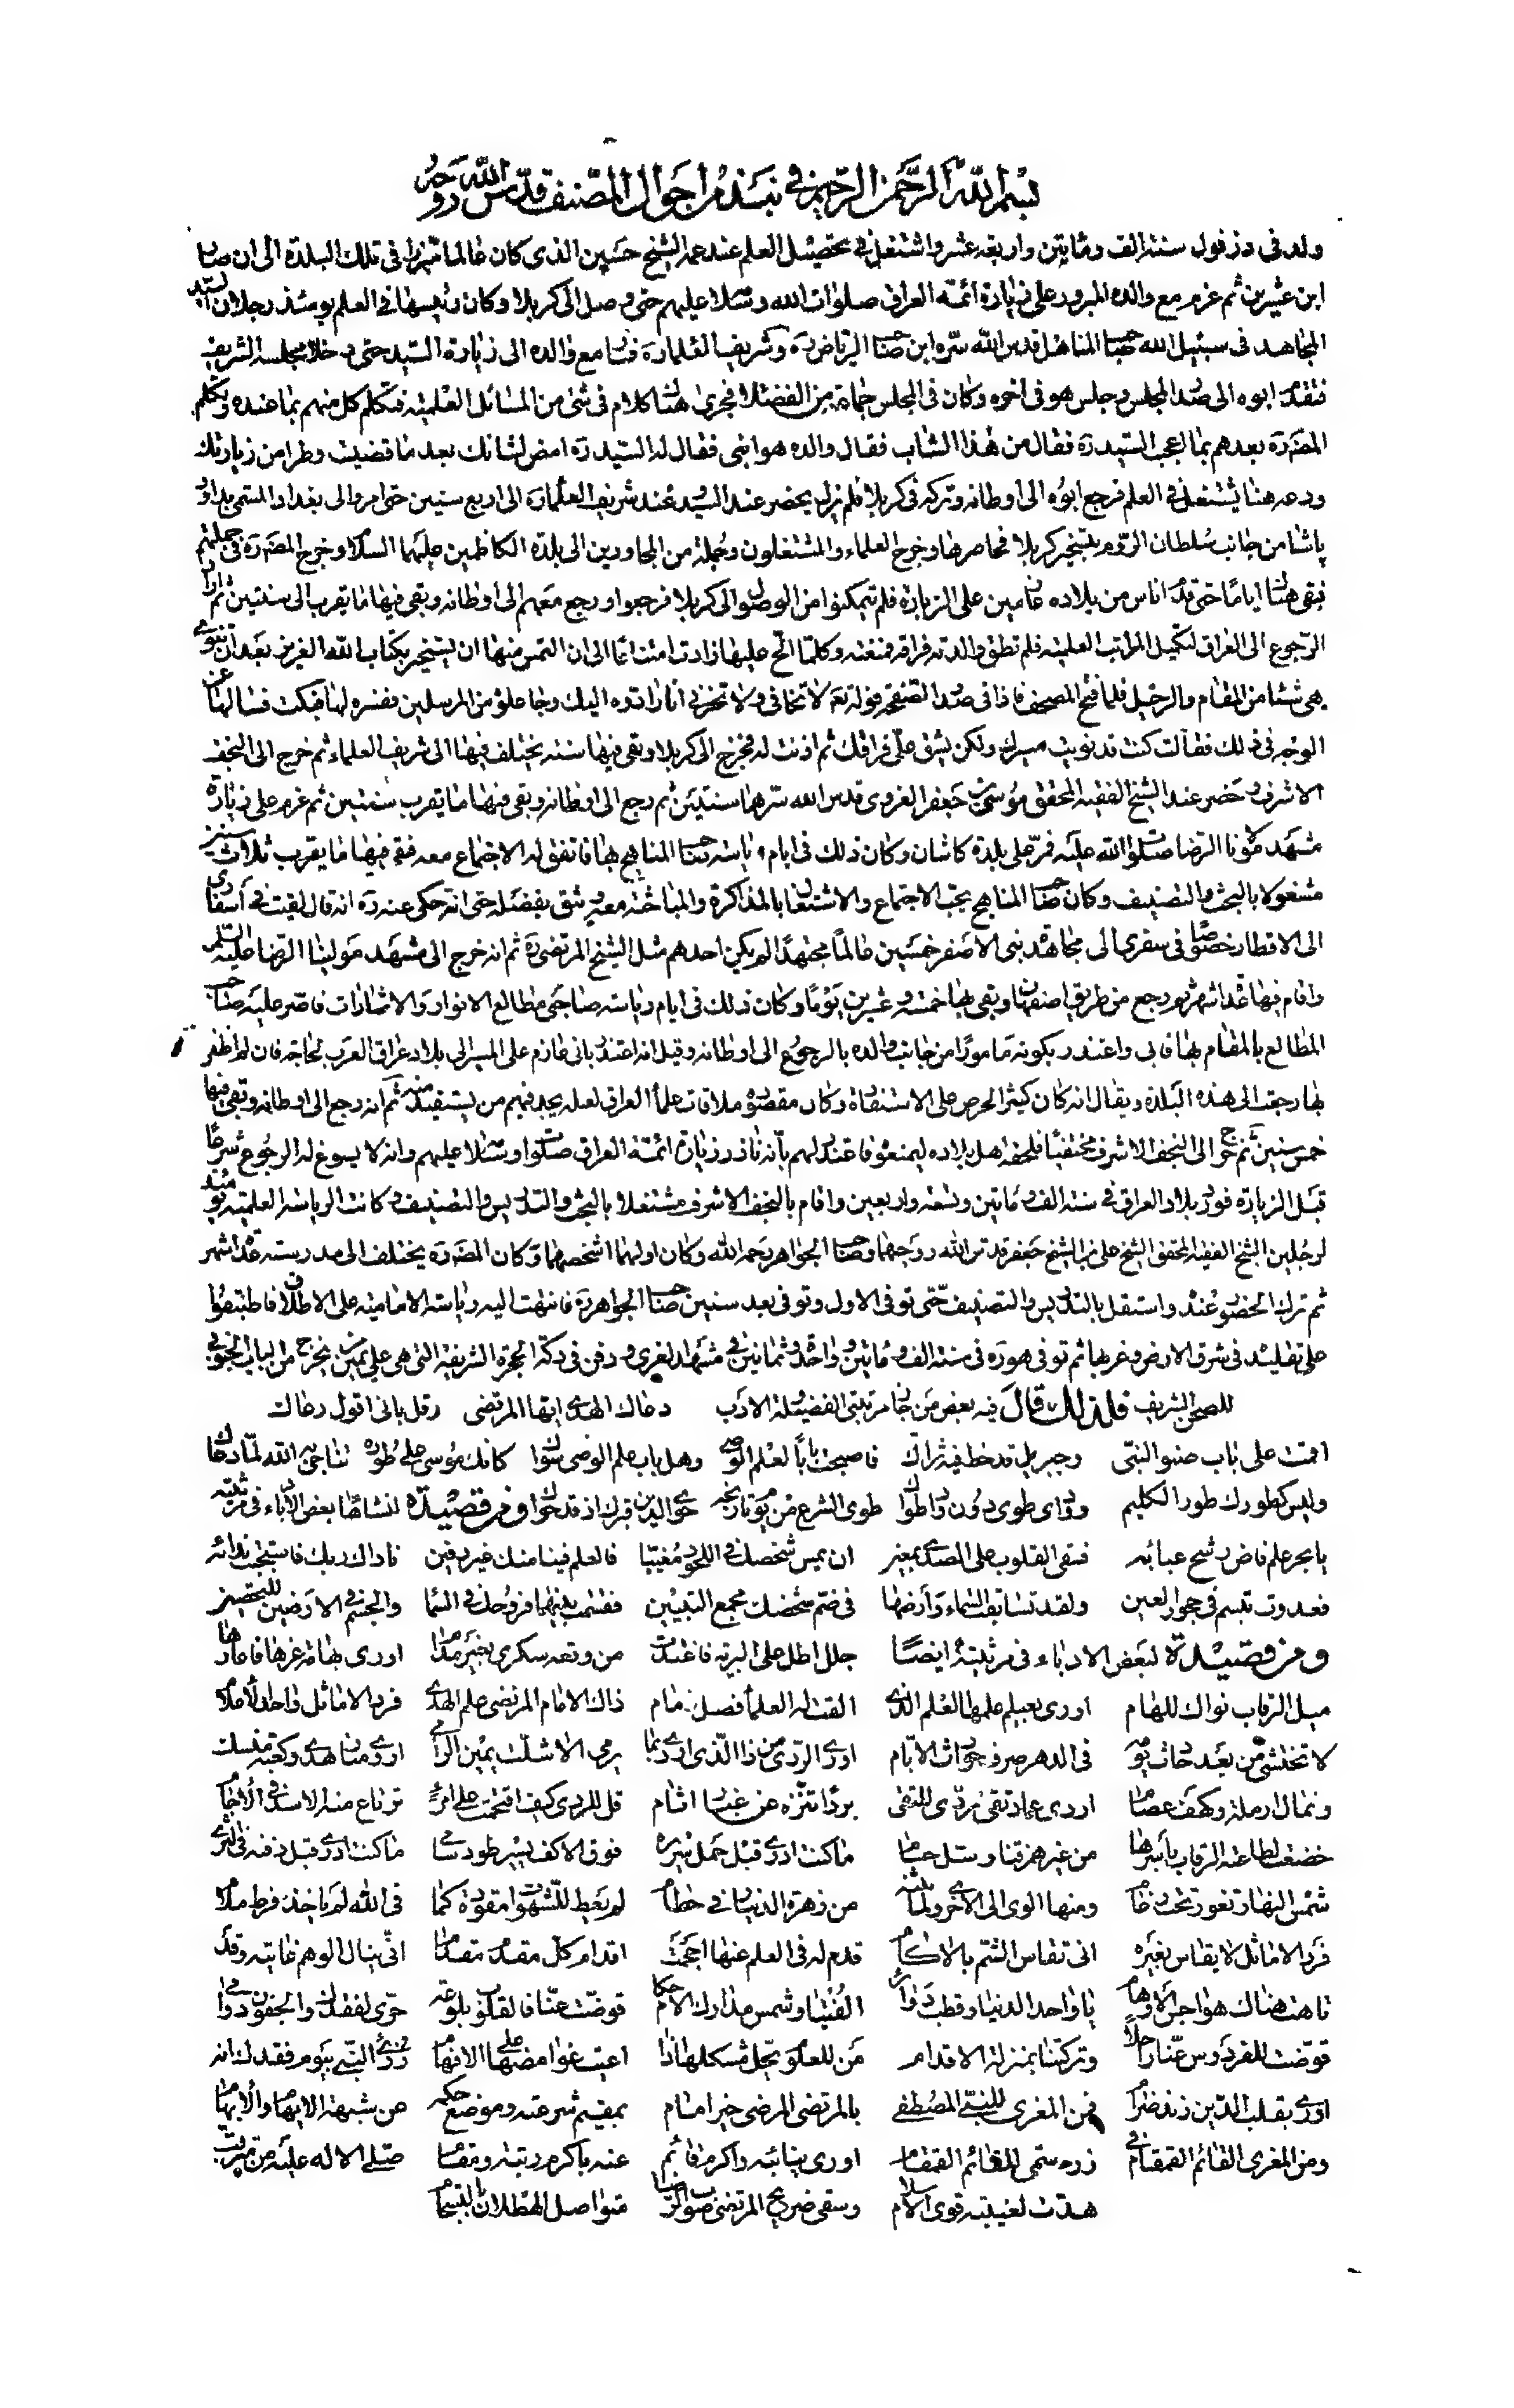 بسم الله الرحمن الرحيم في نبذ من احوال المصنف قدس الله روحه
ولد في دزفول سنة الف ومأتين واربعة عشر واشتغل في تحصيل العلم عند عمه الشيخ حسين الذي كان عالما متبحرا في تلك البلدة الى ان صار
ابن عشرين ثم عزم مع والده المبرور على زيارة ائمة العراق صلوات الله وسلامه عليهم حتى وصل الى كربلا وكان رئيسها في العلم يومئذ رجلان السيد
المجاهد في سبيل الله صاحب المناهل قدس الله سره ابن صاحب الرياض ره وشريف العلماء ره فسار مع والده الى زيارة السيد حتى دخلا مجلسه الشريف
فتقدم ابوه الى صدر المجلس وجلس هو في اخره وكان في المجلس جماعة من الفضلاء فجرى هناك كلام في شئ من المسائل العلمية فتكلم كل منهم بما عنده وتكلم
المص ره بعدهم بما اعجب السيد ره فقال من هذا الشاب فقال والده هو ابني فقال له السيد ره امض لشانك بعد ما قضيت وطرا من زيارتك
ودعه هنا يشتغل في العلم فرجع ابوه الى اوطانه وتركه في كربلا فلم يزل يحضر عند السيد وعند شريف العلماء ره الى اربع سنين حتى امر والى بغداد المسمى بداود
پاشا من جانب سلطان الروم بتسخير كربلا فحاصرها وخرج العلماء والمشتغلون وجملة من المجاورين الى بلدة الكاظمين عليهما السلام وخرج المص ره في جملتهم
فبقى هناك اياما حتى قدم اناس من بلاده عازمين على الزيارة فلم يتمكنوا من الوصول الى كربلا فرجعوا ورجع معهم الى اوطانه وبقى فيها ما يقرب الى سنتين ثم اراد
الرجوع الى العراق لتكميل المراتب العلمية فلم تطق والدته فراقه فمنعته وكلما الح عليها زادت امتناعا الى ان التمس منها ان يستخير بكتاب الله العزيز بعد ان تنوى
هى شيئا من المقام والرحيل فلما فتح المصحف فاذا في صدر الصفحة قوله تع لا تخافي ولا تحزني انا رادوه اليك وجاعلوه من المرسلين ففسره لها فبكت فسالها عن
الوجه في ذلك فقالت كنت قد نويت مسيرك ولكن يشق علي فراقك ثم اذنت له فخرج الى كربلا وبقى فيها سنة يختلف فيها الى شريف العلماء ثم خرج الى النجف
الاشرف وحضر عند الشيخ الفقيه المحقق موسى بن جعفر الغروى قدس الله سرهما سنتين ثم رجع الى اوطانه وبقى فيها ما يقرب سنتين ثم عزم على زيارة
مشهد مولانا الرضا صلوات الله عليه فمر على بلدة كاشان وكان ذلك في ايام رياسة صاحب المناهج بها فاتفق له الاجتماع معه فبقى فيها ما يقرب ثلاث سنين
مشغولا بالبحث والتصنيف وكان صاحب المناهج يحب الاجتماع والاشتغال بالمذاكرة والمباحثة معه ويثق بفضله حتى انه حكى عنه ره انه قال لقيت في اسفارى
الى الاقطار خصوصا في سفرى الى مجاهدة بنى الاصفر خمسين عالما مجتهدا لم يكن احدهم مثل الشيخ المرتضى ره ثم انه خرج الى مشهد مولينا الرضا عليه السلام
واقام فيها عدة اشهر ثم رجع من طريق اصفهان وبقى بها خمسة وعشرين يوما وكان ذلك في ايام رياسة صاحبى مطالع الانوار والاشارات فاصر عليه صاحب
المطالع بالمقام بها فابى واعتذر بكونه مامورا من جانب والده بالرجوع الى اوطانه وقيل انه اعتذر بانى عازم على المسير الى بلاد عراق العرب لحاجة فان لم اظفر
بها رجعت الى هذه البلدة ويقال انه كان كثير الحرص على الاستفادة وكان مقصوده ملاقات علماء العراق لعله يجد فيهم من يستفيد منه ثم انه رجع الى اوطانه وبقى فيها
خمس سنين ثم خرج الى النجف الاشرف مختفيا فلحقه اهل بلاده ليمنعوه فاعتذر لهم بانه ناذر زيارة ائمة العراق صلوات وسلامه عليهم وانه لا يسوغ له الرجوع شرعا
قبل الزيارة فورد بلاد العراق في سنة الف ومأتين وتسعة واربعين واقام بالنجف الاشرف مشتغلا بالبحث والتدريس والتصنيف وكانت الرياسة العلمية يومئذ
لرجلين الشيخ الفقيه المحقق الشيخ على بن الشيخ جعفر قدس الله روحهما وصاحب الجواهر رحمه الله وكان اولهما اشخصهما وكان المص ره يختلف الى مدرسته عدة اشهر
ثم ترك الحضور عنده واستقل بالتدريس والتصنيف حتى توفى الاول وتوفى بعد سنين صاحب الجواهر ره فانتهت اليه رياسة الامامية على الاطلاق فاطبقوا
على تقليده في شرق الارض وغربها ثم توفى هو ره في سنة الف ومأتين وواحد وثمانين في مشهد الغرى ودفن في دكة الحجرة الشريفة التى هى على يمين من يخرج من الباب الجنوبي
للصحن الشريف فلذلك قال فيه بعض من جاز مرتبتى الفضيلة الادب دعاك الهدى ايها المرتضى وقل بانى اقول دعاك
اقمت على باب صنو النبي وجبريل قد خط فيه ثراك فاصبحت بابا لعلم الوصى وهل باب علم الوصى سواك كانك موسى على طوره تناجى به الله لما دعاك
وليس كطورك طور الكليم ووادى طوى دون وادى طواك طوى الشرع من يوم تاريخه حوى الدين قبرك اذ قد حواك ومن قصيدة انشاها بعض الادباء في مرثيته
يا بحر علم فاض رشح عبابه فسقى القلوب على الصدى بمعين ان يمس شخصك في اللحود مغيبا فالعلم فينا منك غير دفين ناداك ربك فاستجبت ندائه
فغدوت تبسم في جوار العين ولقد تسابقت السماء وارضها في ضم شخصك مجمع التبيين فقسمت بينهما فروحك في السما والجسم في الارضين للتحصين
ومن قصيدة لبعض الادباء في مرثيته ايضا جلل اطل على البرية فاغتدت من وقعه سكرى بغير مدام اودى بهامة عزها فاعادها
ميل الرقاب نواكس الهام اودى بعيلم علمها العلم الذى القت له العلماء فضل زمام ذاك الامام المرتضى علم الهدى فرد الاماثل واحد الاعلام
لا تختشى من بعد حادث يومه في الدهر صرف حوادث الايام اودى الردى من ذا الذى اودى بما يرمى الا شلت يمين الرامى اودى منار هدى وكعبة ملتمسك
وثمال ارملة وكهف عصام اودى عماد تقى تردى للتقى بردا تنزه عن غبار اثام قل للردى كيف اقتحمت على امرئ ترتاع منه الاسد في الاجام
خضعت لطاعته الرقاب باسرها من غير هز قنا وسل حسام ما كنت ادرى قبل حمل سريره فوق الاكف يسير طود سامى ما كنت ادرى قبل دفنه في الثرى
شمس النهار تغور تحت رغام ومنها الوى الى الاخرى ولما يثنه من زهرة الدنيا في حطام لم يعط للشهوات مقوده كما في الله لم ياخذه فرط ملام
فرد الاماثل لا يقاس بغيره انى تقاس الشم بالاكام قدم له في العلم عنها احجمت اقدام كل مقدم مقدام انى ينال الوهم غايته وقد
تاهت هناك هواجس الاوهام يا واحد الدنيا وقطب دوائر الفتيا وشمس مدارك الاحكام قوضت عنا فالقلوب بلوعة حرى لفقدك والجفون دوامى
قوضت للفردوس عنا راحلا وتركتنا بمنزلة الاقدام من للعلوم يحل مشكلها اذا اعيت غوامضها على الافهام رزئ النبي بيوم فقدك
اورى بقلب الدين زند ضرام من المعزى للنبى المصطفى بالمرتضى المرضى خير امام بمقيم شرعته وموضع حكمه عن شبهة الابهام والايهام
ومن المعزى القائم القمقام في رزء سمى للقائم القمقام اودى بنائبه واكرم قائم عنه باكرم رتبة ومقام صلى الاله عليه من متغيب
هدت لغيبته قوى الاسلام وسقى ضريح المرتضى صوب الرضا متواصل الهطلان والتسجام